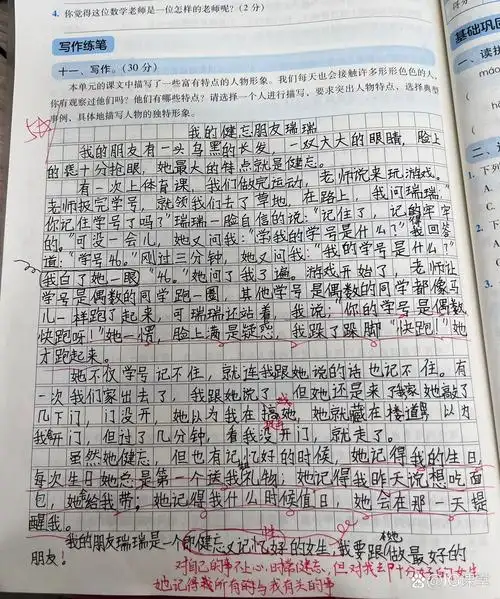 4. 你觉得这位数学老师是一位怎样的老师呢？(2 分)
写作练笔
十一、写作。(30 分)
本单元的课文中描写了一些富有特点的人物形象。我们每天也会接触许多形形色色的人,
你有观察过他们吗？他们有哪些特点？请选择一个人进行描写，要求突出人物特点，选择典型
事例，具体地描写人物的独特形象。
我的健忘朋友瑞瑞
我的朋友有一头乌黑的长发，一双大大的眼睛，脸上
的 十分抢眼，她最大的特点就是健忘。
有一次上体育课，我们做完运动，老师说来玩游戏。
老师报完学号，就领我们去了草地，在路上，我问瑞瑞：“
你记住学号了吗？”瑞瑞一脸自信的说：“记住了，记得牢牢
的。”可没一会儿，她又问我：“学我的学号是什么？”我回答
道：“学号46。”刚过三分钟，她又问我：“我的学号是什么？”
我白了她一眼“46。”她问了我3遍。游戏开始了，老师让
学号是偶数的同学跑一圈，其他学号是偶数的同学都像马
儿一样跑了起来，可瑞瑞还站着，我说：“你的学号是偶数
快跑呀！”她一愣，脸上满是疑惑，我跺了跺脚“快跑！”她
才跑起来。
她不仅学号记不住，就连我跟她说的话也记不住。有
一次我们家出去了，我跟她说了，但她还是来了我家她敲了
几下门，门没开，她以为我在搞她，她就藏在楼道 以为
我 开门，但过了几分钟，看我没开门，就走了。
虽然她健忘，但也有记忆好的时候，她记得我的生日，
每次生日她总是第一个送我礼物；她记得我昨天说想吃面
包，她会给我带；她记得我什么时候值日，她会在那一天提
醒我。
我的朋友瑞瑞是一个即健忘又记忆性好的女生，我要跟她做最好的
朋友！
对自己的事不上心，时常健忘，但对我 十分好的女生
她记得我所有的与我有关的事
基础巩固
一、读拼
二、
1. 下列
A.
2.